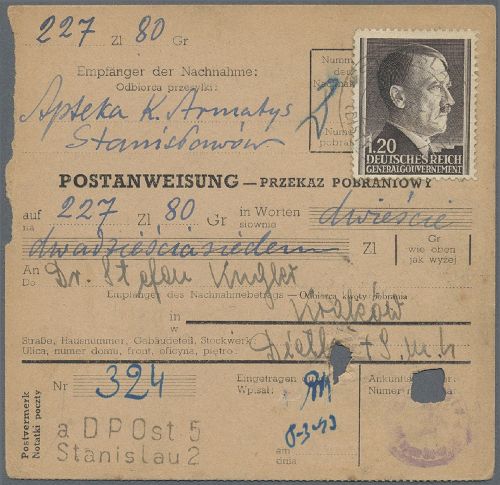 227 Zl 80 Gr
Empfänger der Nachnahme:
Odbiorca przesyłki:
Apteka K. Armatys
Stanisławów
Numm
de
Nachnah
Nume
pobran
1.20
DEUTSCHES REICH
GENERALGOUVERNEMENT
POSTANWEISUNG — PRZEKAZ POBRANIOWY
auf 227 Zl 80 Gr in Worten dwieście
na słownie
dwadzieściasiedem Zl Gr wie oben jak wyżej
An Dr. Stefan Kugler
Do
Empfänger des Nachnahmebetrags — Odbiorca kwoty pobrania
in Kraków
w
Straße, Hausnummer, Gebäudeteil, Stockwerk
Ulica, numer domu, front, oficyna, piętro:
Dietla
Nr 324
Eingetragen
Wpisał:
8-3-43
am
dnia
Ankunfts
Numer
Postvermerk
Notatki poczty
a DPOst 5
Stanislau 2